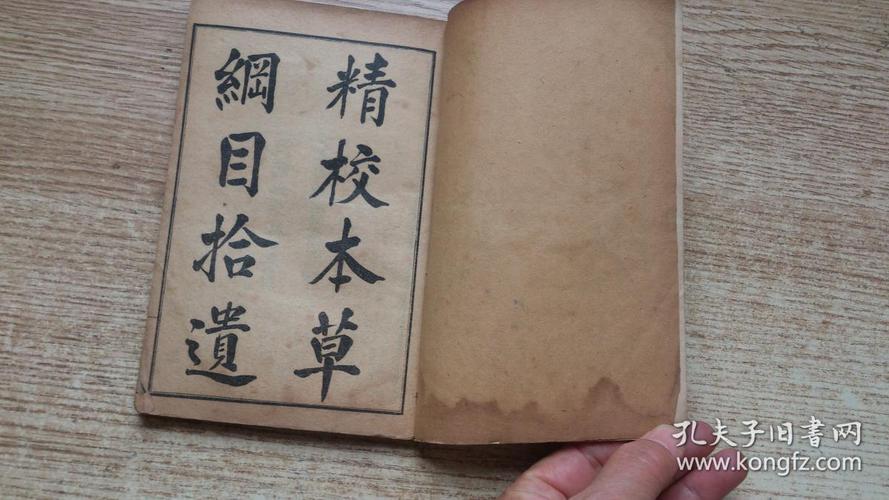 精校本草
綱目拾遺
孔夫子旧书网
www.kongfz.com